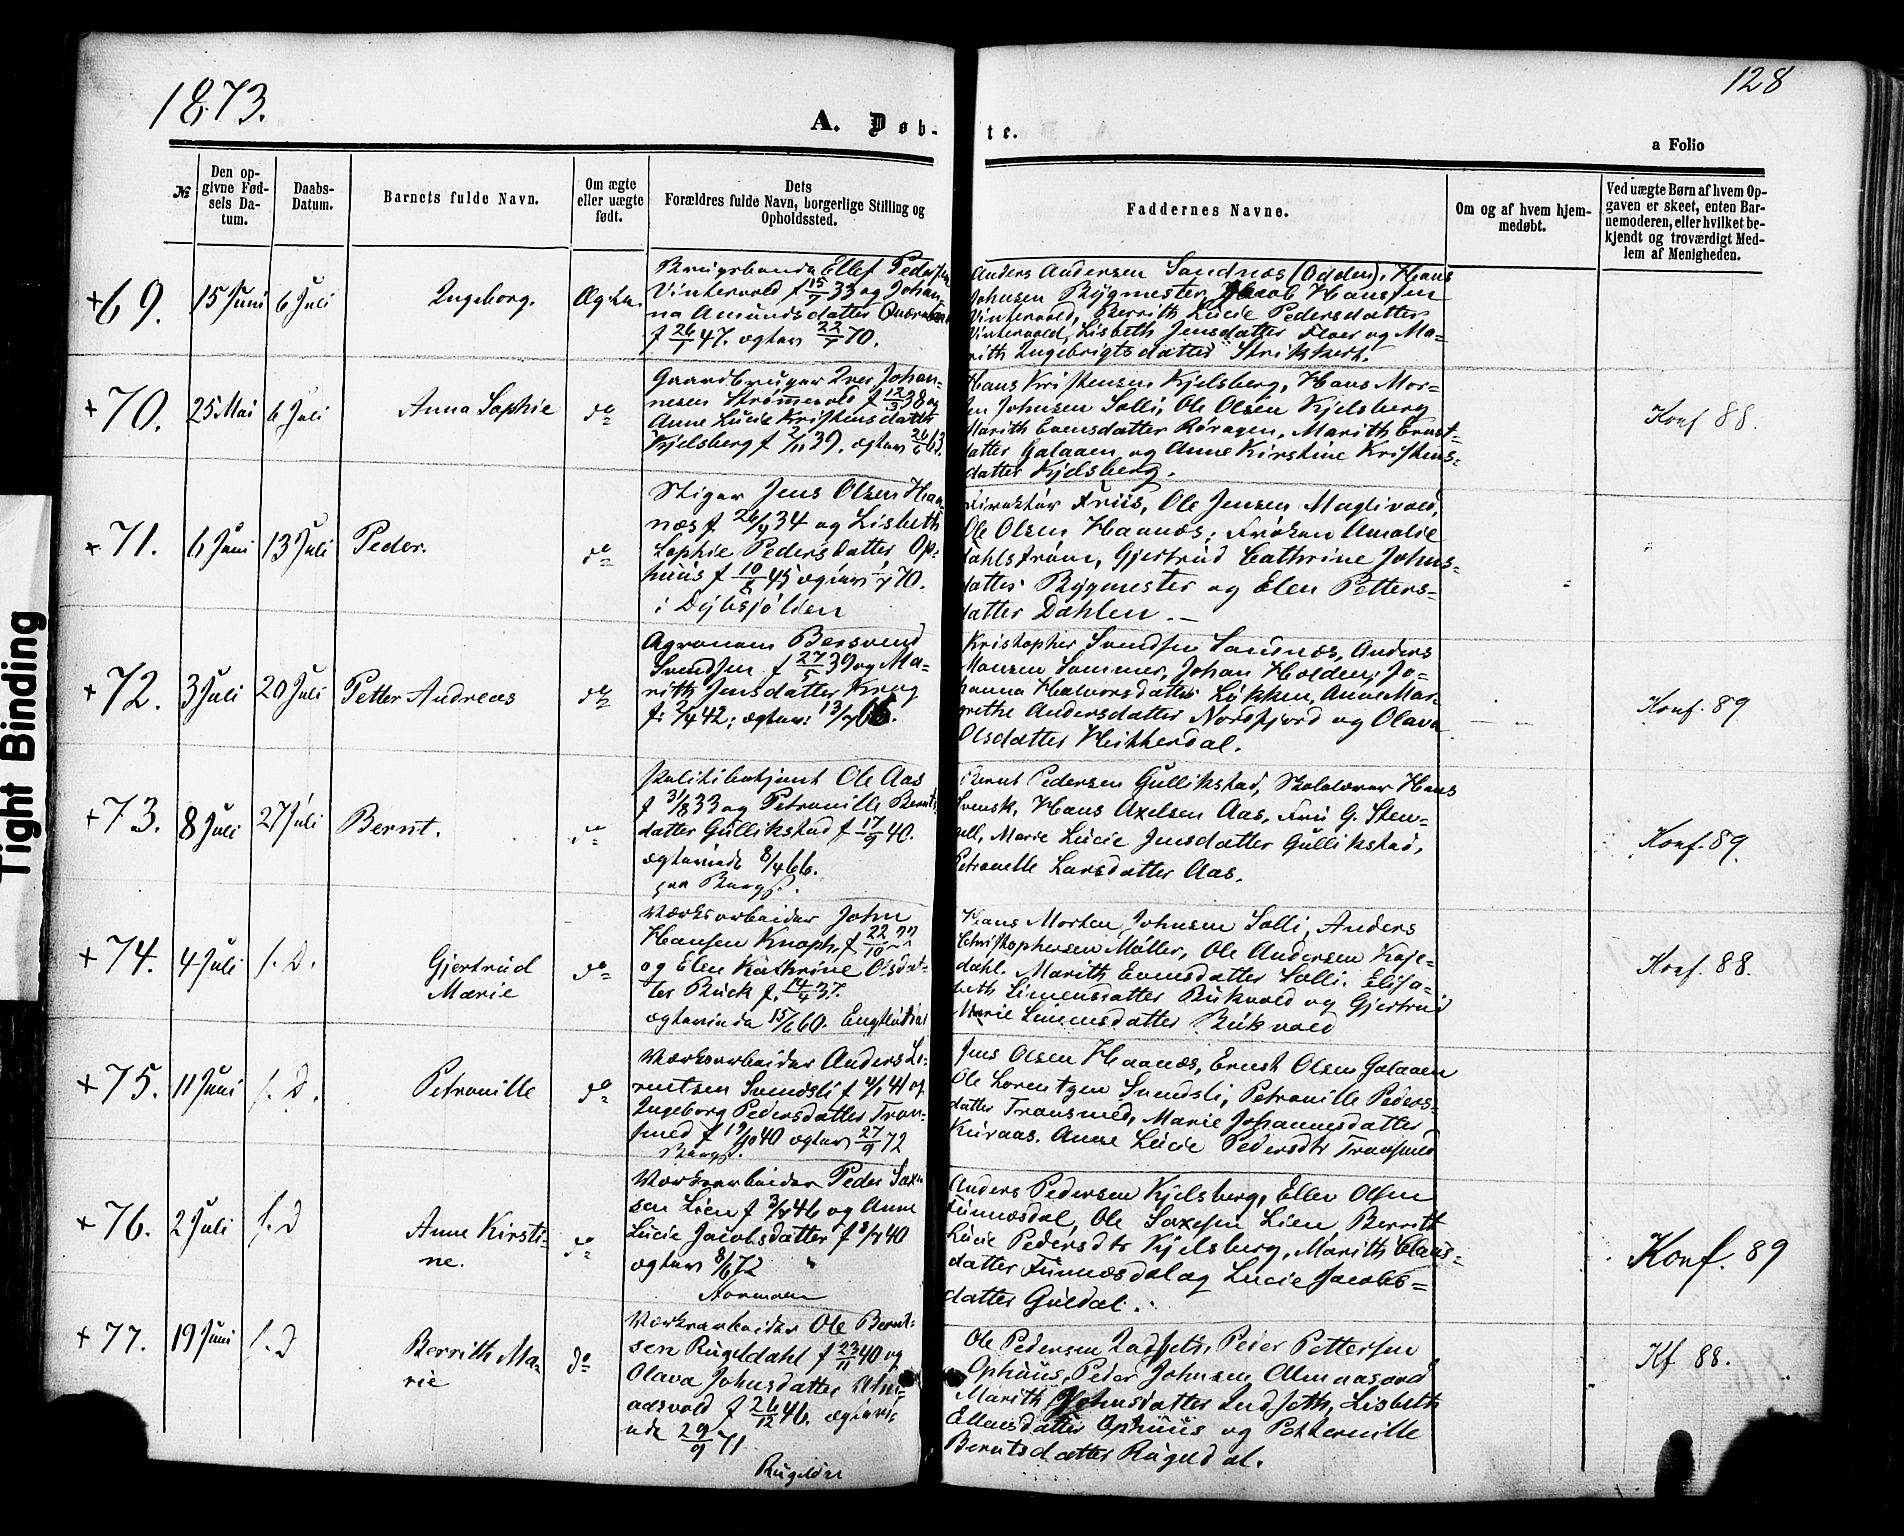 1873.
128
A. Døb-
te.
a Folio
№
Den op-
givne Fød-
sels Da-
tum.
Daabs-
Datum.
Barnets fulde Navn.
Om ægte
eller uægte
født.
Dets
Forældres fulde Navn, borgerlige Stilling og
Opholdssted.
Faddernes Navne.
Om og af hvem hjem-
medøbt.
Ved uægte Børn af hvem Op-
gaven er skeet, enten Bar-
nemoderen, eller hvilket be-
kjendt og troværdigt Med-
lem af Menigheden.
+69. 15 Juni 6 Juli Ingeborg. Ægte.
Ellef Peders
Vintervold f 15/7 33 og Johan-
na Amundsdatter
f 26/7 47. ægtev 22/7 70.
Anders Andersen Sandnæs (Odden). Hans
Johnsen Bygmester, Jacob Hanssen
Vintervold, Berrith Lucie Pedersdatter
Vintervold, Lisbeth Jensdatter Floer og Ma-
rith Ingebrigtsdatter Strikkert.
+70. 25 Mai 6 Juli Anna Sophie do
Gaardbruger Iver Johan-
nesen Strømmevold f 12/3 38 og
Anne Lucie Kristensdatter
Kjelsberg f 2/11 39. ægtev 26/6 63.
Hans Kristensen Kjelsberg, Hans Mor-
ten Johnsen Solli, Ole Olsen Kjelsberg
Marith Evensdatter Røragen, Marith Ernst-
datter Galaaen og Anne Kirstine Kristens-
datter Kjelsberg.
Konf 88.
+71. 6 Juni 13 Juli Peder. do
Stiger Jens Olsen Haa-
næs f 26/4 34 og Lisbeth
Sophie Pedersdatter Op-
huus f 10/8 45 ægtev 70.
i
Direktør Friis, Ole Jensen Maglivold,
Ole Olsen Haanæs, Frøken Amalie
Dahlstrøm, Gjertrud Cathrine Johns-
datter Bygmester og Elen Petters-
datter Dahlen.
+72. 3 Juli 20 Juli Petter Andreas do
Agronom Bersvend
Svendsen f 27/5 39 og Ma-
rith Jensdatter Krog
f: 2/4 42; ægtev: 13/7 66.
Kristopher Svendsen Sandnæs, Anders
Monsen Sommer, Johan Holden, Jo-
hanna Halvorsdatter Løkken, Anne Mar-
grethe Andersdatter Nordfjord og Olava
Olsdatter Hitterdal.
Konf. 89
+73. 8 Juli 27 Juli Bernt. do
Politibetjent Ole Aas
f 31/8 33 og Petronille Bernts
datter Gullikstad f 17/9 40.
ægteviede 8/4 66.
paa Bergst.
Bernt Pedersen Gullikstad, Skolelærer Hans
Svensk, Hans Axelsen Aas, Fru G. Sten-
gell, Marie Lucie Jensdatter Gullikstad,
Petronelle Larsdatter Aas.
Konf. 89.
+74. 4 Juli s. D. Gjertrud
Marie do
Værksarbeider John
Hansen Knoph, f 22/10
og Elen Kathrine Olsdat-
ter Buck f. 14/4 37.
ægteviede 15/6 60.
Hans Morten Johnsen Solli, Anders
Christophersen Møller, Ole Andersen Koje-
dahl. Marith Evensdatter Solli. Elisa-
beth Simensdatter Bukvold og Gjertrud
Marie Simensdatter Bukvold
Konf. 88.
+75. 11 Juni s. D. Petronille do
Værksarbeider Anders Lo-
rentsen Svendsli f 4/1 41 og
Ingeborg Pedersdatter Trons-
med f 19/10 40 ægtev 27/9 72
Bergst.
Jens Olsen Haanæs, Ernst Olsen Galaaen
Ole Lorentzen Svendsli, Petronille Peders-
datter Transmed, Marie Johannesdatter
Kuraas. Anne Lucie Pedersdtr Tronsmed
+76. 2 Juli s. D Anne Kirsti-
ne. do
Værksarbeider Peder Saxe
sen Lien f 3/8 46 og Anne
Lucie Jacobsdatter f 8/7 40
ægtev 8/6 72
Aormoen
Anders Pedersen Kjelsberg, Ellev Olsen
Funnesdal, Ole Saxesen Lien Berrith
Lucie Pedersdtr Kjelsberg, Marith Claus-
datter Funnæsdal og Lucie Jacobs-
datter Guldal.
Konf. 89
+77. 19 Juni s. D Berrith Ma-
rie do
Værksarbeider Ole Bernt-
sen Rugeldahl f 23/11 40 og
Olava Johnsdatter Alm-
aasvold f 26/12 46. ægtevi-
ede 29/9 71
Rugeldal
Ole Pedersen Indseth, Peder Pettersen
Ophuus, Peder Johnsen Almaasvold
Marith Johnsdatter Indseth, Lisbeth
Ellensdatter Ophuus og Petternille
Berntsdatter Rugeldal.
Kf 88.
Tight Binding